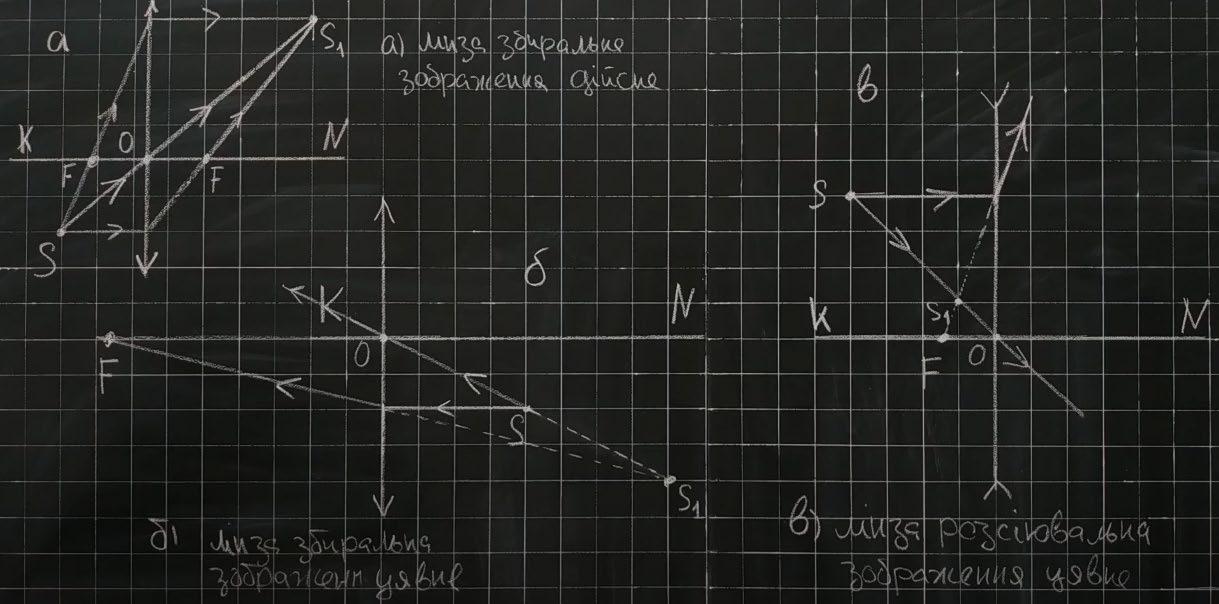 а
S₁
а) лінза збиральна
зображення дійсне
K
O
N
F
F
S
б
K
N
O
F
S
S₁
б) лінза збиральна
зображенн уявне
в
S
S₁
K
N
F
O
в) лінза розсіювальна
зображення уявне